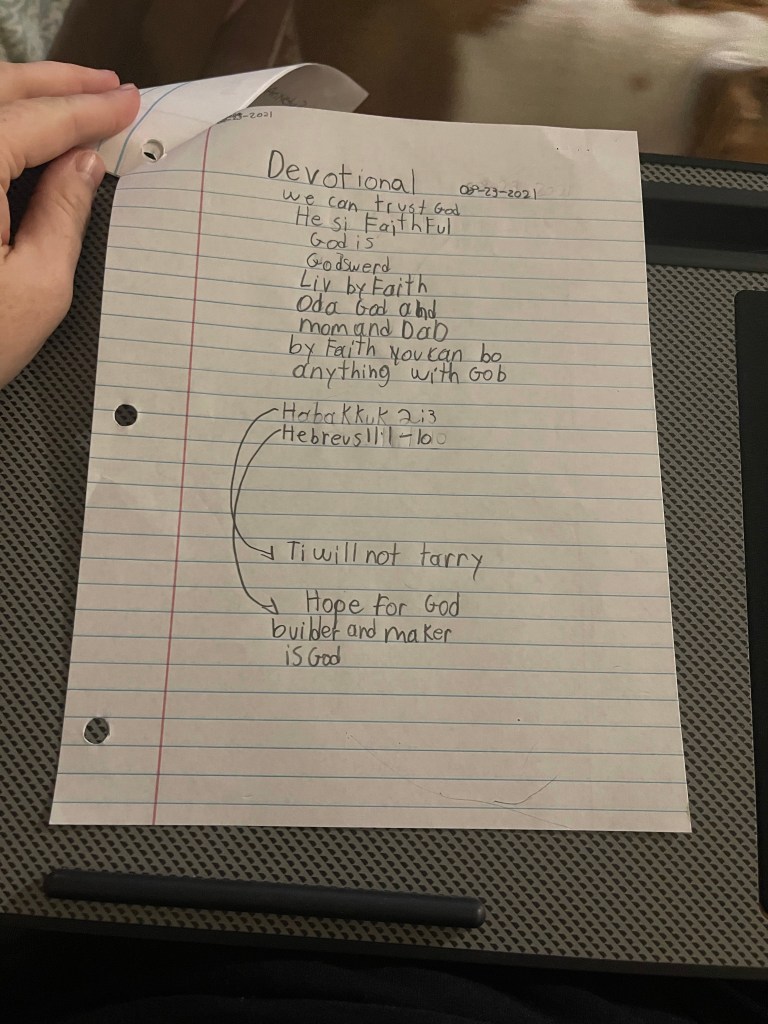 -2021
Devotional 09-29-2021
we can trust God
He si FaithFul
God is
Godswerd
Liv by Faith
Oda God and
mom and DaD
by Faith you can bo
anything with Gob
Habakkuk 2:3
Hebreus 11:1-10
Ti will not tarry
Hope For God
builder and maker
is God